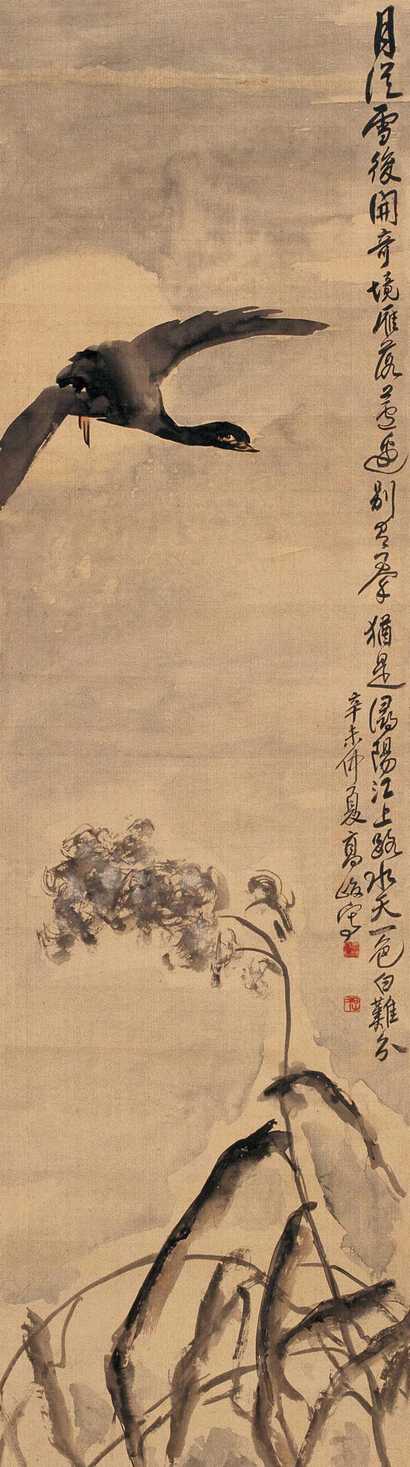 月從雪後開奇境雁落蘆邊別有羣猶是潯陽江上路水天一色白難分
辛未仲夏高峻寫